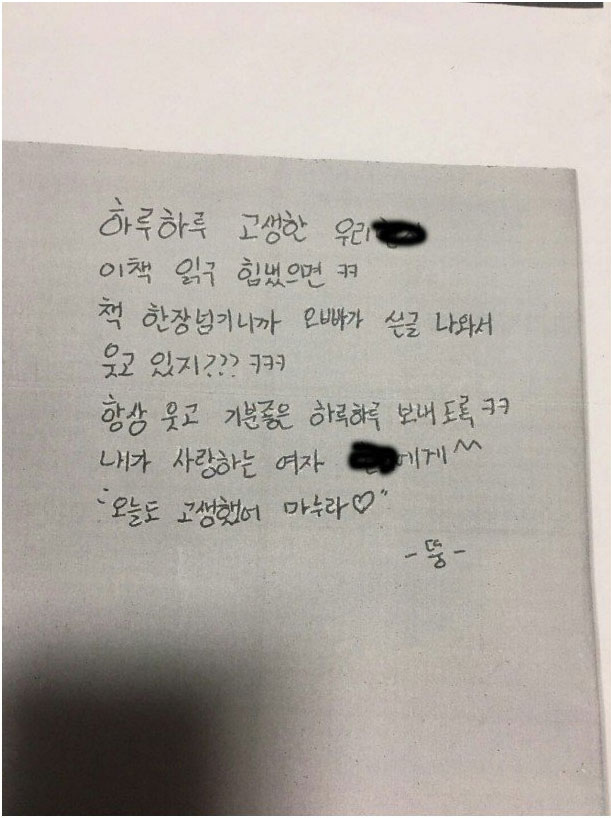 하루하루 고생한 우리
이책 읽구 힘냈으면 ㅋㅋ
책 한장넘기니까 오빠가 쓴글 나와서
웃고 있지??? ㅋㅋㅋ
항상 웃고 기분좋은 하루하루 보내도록 ㅋㅋ
내가 사랑하는 여자 에게^^
"오늘도 고생했어 마누라♡"
-뚱-